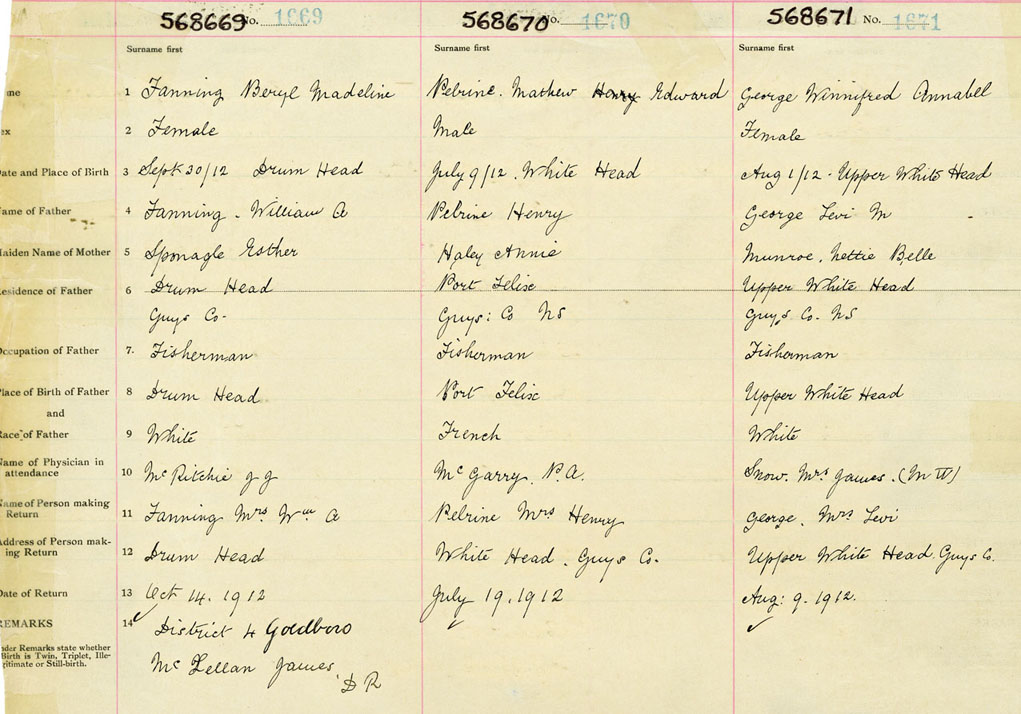 568669 No. 1669 568670 No. 1670 568671 No. 1671
Surname first Surname first Surname first
me 1 Fanning Beryl Madeline Pelrine. Mathew Henry Edward George Winnifred Annabel
ex 2 Female Male Female
ate and Place of Birth 3 Sept 30/12 Drum Head July 9/12. White Head Aug 1/12 - Upper White Head
ame of Father 4 Fanning. William A Pelrine Henry George Levi M
aiden Name of Mother 5 Sponagle Esther Haley Annie Munroe, Nettie Belle
esidence of Father 6 Drum Head Port Felix Upper White Head
Guys Co- Guys: Co NS Guys Co- NS
ccupation of Father 7. Fisherman Fisherman Fisherman
lace of Birth of Father 8 Drum Head Port Felix Upper White Head
and
ace of Father 9 White French White
ame of Physician in
attendance 10 McRitchie J J McGarry P.A. Snow. Mrs James. (M W)
ame of Person making
Return 11 Fanning Mrs Wm A Pelrine Mrs Henry George. Mrs Levi
ddress of Person mak-
ing Return 12 Drum Head White Head. Guys Co. Upper White Head. Guys Co.
ate of Return 13 Oct 14. 1912 July 19. 1912 Aug: 9. 1912.
EMARKS 14 District 4 Goldboro
nder Remarks state whether
Birth is Twin, Triplet, Ille-
gitimate or Still-birth.
McLellan James
D R